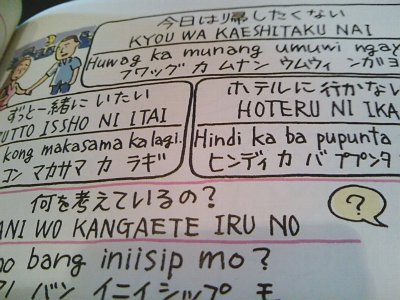 今日は帰したくない
KYOU WA KAESHITAKU NAI
Huwag ka munang umuwi ngay
フワッグ カ ムナン ウムウィ ンガヨ
ずっと一緒に いたい
UTTO ISSHO NI ITAI
kong makasama ka lagi.
ゴン マカサマ カ ラギ
ホテルに 行かない
HOTERU NI IKA
Hindi ka ba pupunta
ヒンディ カ バ ププンタ
何を考えているの?
ANI WO KANGAETE IRU NO
?
no bang iniisip mo?
ノ バン イニイシップ モ